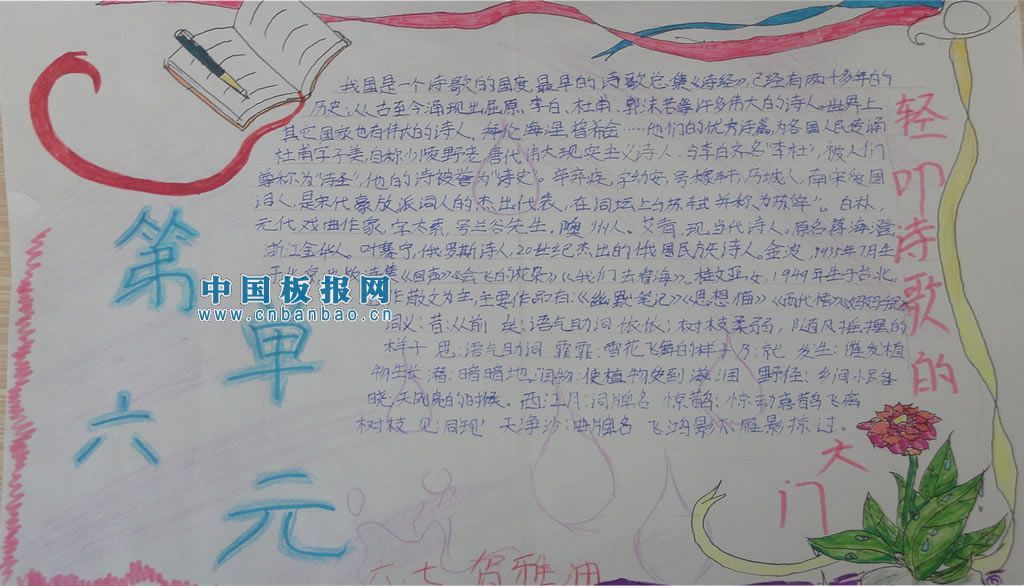 第六单元
中国板报网
www.cnbanbao.cn
我国是一个诗歌的国度,最早的诗歌总集《诗经》,已经有两千多年的
历史,从古至今涌现出屈原、李白、杜甫、郭沫若等许多伟大的诗人。世界上
其它国家也有伟大的诗人,荷伦海涅,普希金……他们的优秀诗篇,为各国人民传诵
杜甫字子美,自称少陵野老,唐代伟大现实主义诗人,与李白齐名"李杜",被人们
尊称为"诗圣",他的诗被誉为"诗史"。辛弃疾,字幼安,号稼轩,历城人,南宋爱国
词人,是宋代豪放派词人的杰出代表,在词坛上与苏轼并称为苏辛"。白朴,
元代戏曲作家,字太素,号兰谷先生,隩州人。艾青,现当代诗人。原名蒋海澄,
浙江金华人。叶赛宁,俄罗斯诗人,20世纪杰出的俄国民族诗人。金波,1935年7月生
诗集《回声》《会飞的花朵》《我们去看海》。桂文亚,女,1949年生于台北,
作散文为主,主要作品有:《幽默笔记》《思想猫》《两代情》
词义:昔:从前 矣:语气助词 依依:树枝柔弱,随风摇摆的
样子 思:语气助词 霏霏:雪花飞舞的样子 乃:就 发生:催发植
物生长 潜:暗暗地。润物:使植物受到滋润 野径:乡间小路
晓:天刚亮的时候。西江月:词牌名 惊鹊:惊动喜鹊飞离
树枝 见:同现' 天净沙:曲牌名 飞鸿影下:雁影掠过。
轻叩诗歌的
大门
六.七 贺雅